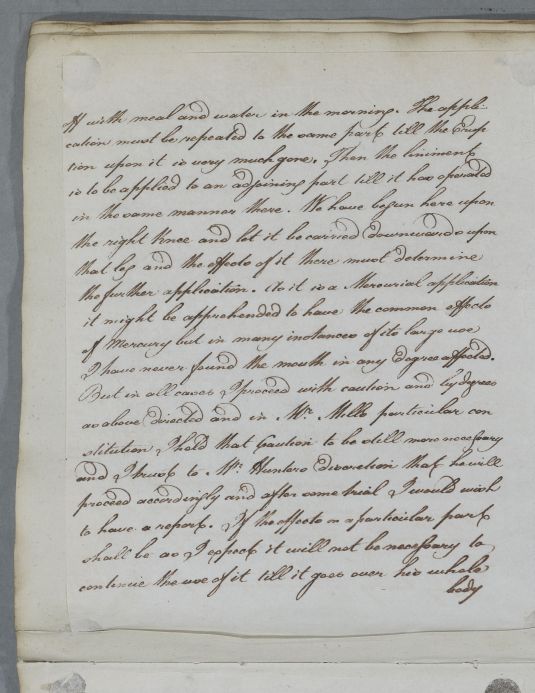 it with meal and water in the morning. The appli-
cation must be repeated to the same part till the Erup
tion upon it is very much gone. Then the liniment
is to be applied to an adjoining part till it has operated
in the same manner there. We have begun here upon
the right Knee and let it be carried downwards upon
that leg and the effects of it there must determine
the further application. As it is a Mercurial application
it might be apprehended to have the common effects
of Mercury but in many instances of its large use
I have never found the mouth in any degree affected.
But in all cases I proceed with caution and by degrees
as above directed and in Mr. Mills particular con
stitution I hold that Caution to be still more necessary
and I trust to Mr. Hunters discretion that he will
proceed accordingly and after some trial I would wish
to have a report. If the effects on a particular part
shall be as I expect it will not be necessary to
continue the use of it till it goes over his whole
body